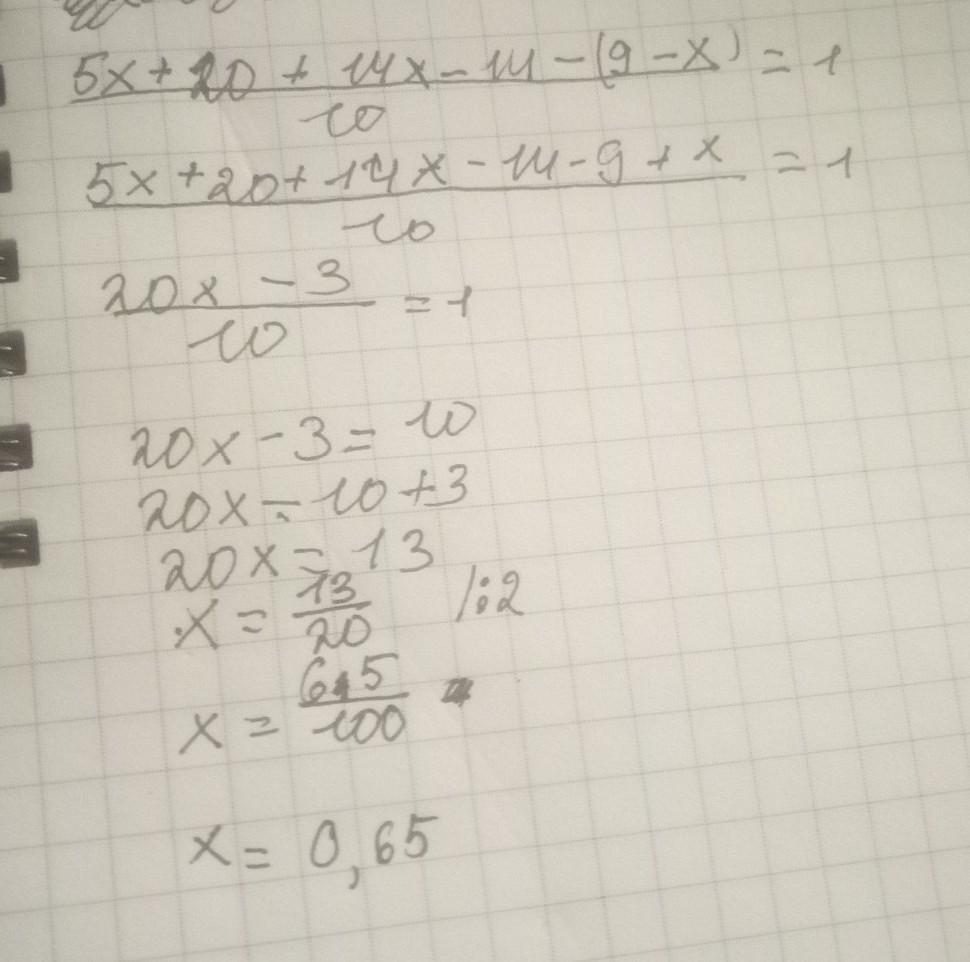 5x + 20 + 14x - 14 - (9 - x) = 1
10
5x + 20 + 14x - 14 - 9 + x = 1
10
20x - 3 = 1
10
20x - 3 = 10
20x = 10 + 3
20x = 13
x = 13/20 /:2
x = 65/100
x = 0,65